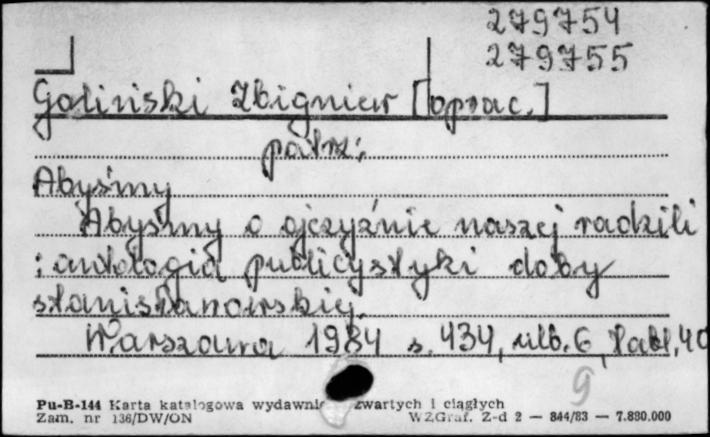 279754
279755
Goliński Zbigniew [oprac.]
patrz:
Abyśmy
Abyśmy o ojczyźnie naszej radzili
: antologia publicystyki doby
stanisławowskiej.
Warszawa 1984 s. 434, nlb. 6, tabl. 40
9
Pu-B-144 Karta katalogowa wydawnic zwartych i ciągłych
Zam. nr 136/DW/ON WZGraf. Z-d 2 — 844/83 — 7.880.000